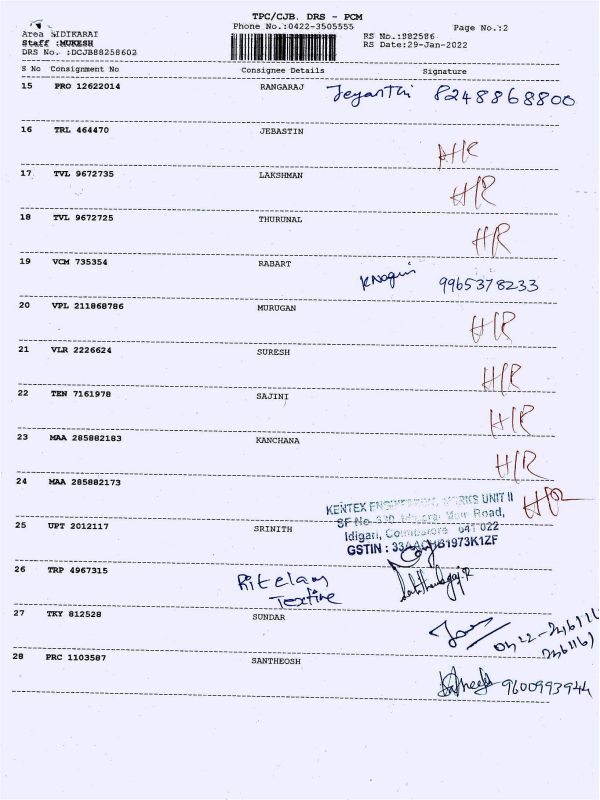 TPC/CJB. DRS - PCM
Phone No.:0422-3505555
Page No.:2
Area :IDIKARAI
Staff :MUKESH
DRS No. :DCJB88258602
RS No.:882586
RS Date:29-Jan-2022
S No Consignment No Consignee Details Signature
15 PRO 12622014 RANGARAJ Jeyanthi 8248868800
16 TRL 464470 JEBASTIN
H/R
17 TVL 9672735 LAKSHMAN
H/R
18 TVL 9672725 THURUNAL
H/R
19 VCM 735354 RABART
9965378233
20 VPL 211868786 MURUGAN
H/R
21 VLR 2226624 SURESH
H/R
22 TEN 7161978 SAJINI
H/R
23 MAA 285882183 KANCHANA
H/R
24 MAA 285882173
H/R
KENTEX ENGINEERING WORKS UNIT II
SF No Road,
Idigari, Coimbatore 641 022
GSTIN :
25 UPT 2012117 SRINITH
26 TRP 4967315
Textine
27 TKY 812528 SUNDAR
28 PRC 1103587 SANTHEOSH
9600993944